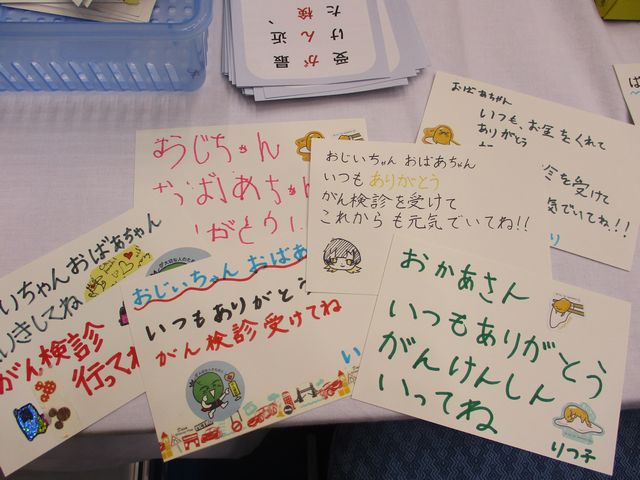 最近、
がん検
受けた
おばあちゃん
いつも、お金をくれて
ありがとう
を受けて
気でいてね!!
おじいちゃん おばあちゃん
いつも ありがとう
がん検診を受けて
これからも元気でいてね!!
おじちゃん
おばあちゃん
がとう
ちゃんおばあちゃん
きしてね
がん検診
行ってね
おじいちゃん おばあ
いつもありがとう
がん検診受けてね
い
おかあさん
いつもありがとう
がんけんしん
いってね
りつ子
は